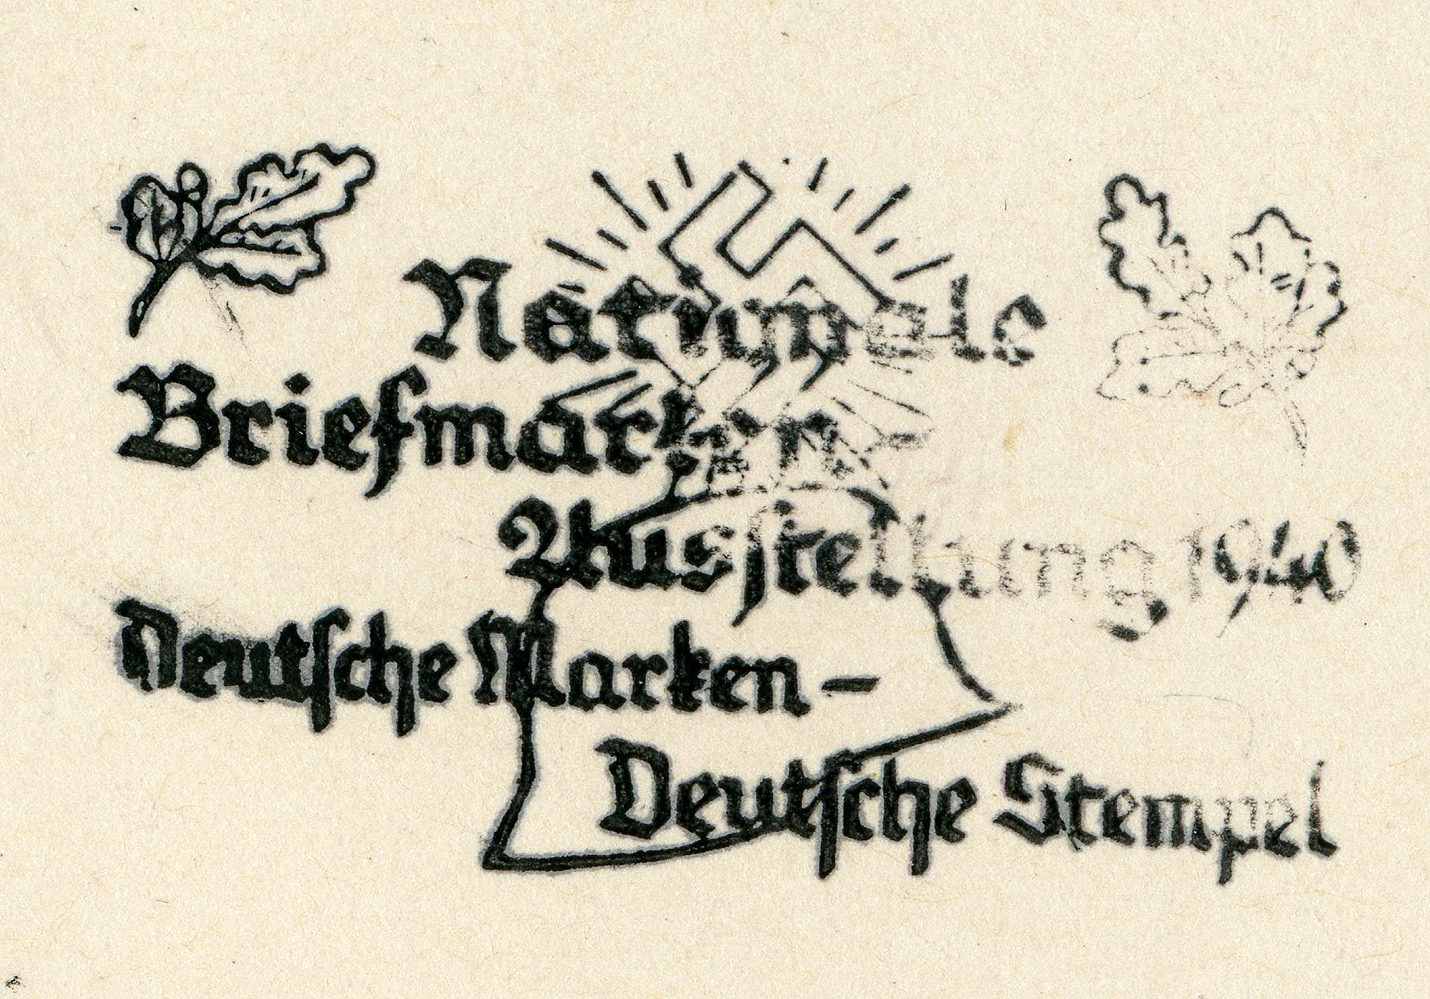 Nationale
Briefmarken-
Ausstellung 1940
Deutsche Marken –
Deutsche Stempel